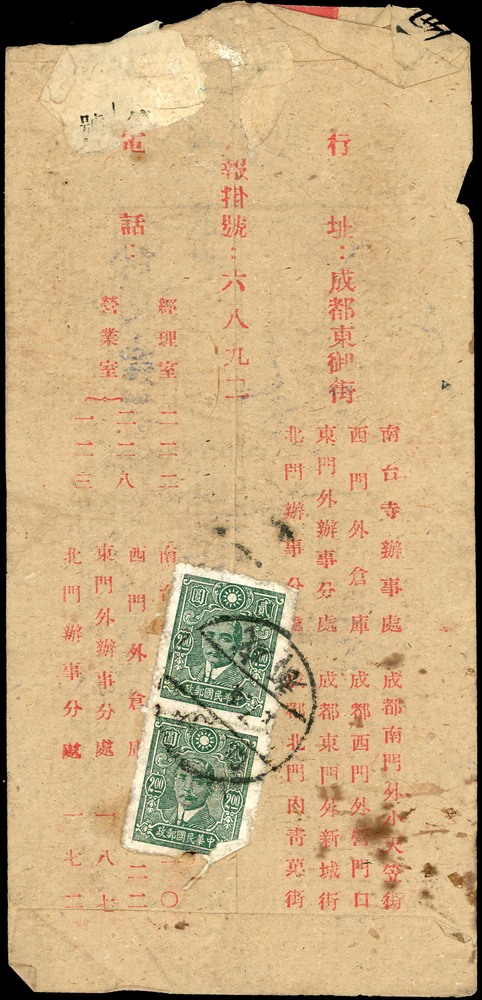 行址：成都東御街
南台寺辦事處 成都南門外小天竺街
西門外倉庫 成都西門外營門口
東門外辦事分處 成都東門外新城街
北門辦事分處 都北門內靑菓街
報掛號：六八九二
電話：
經理室 二二二
營業室 二二八
一二三
南台
西門外倉庫 二二
東門外辦事分處 一八七
北門辦事分處 一七二
號
圓 貳
200 200
政郵國民華中
圓
200 200
政郵國民華中